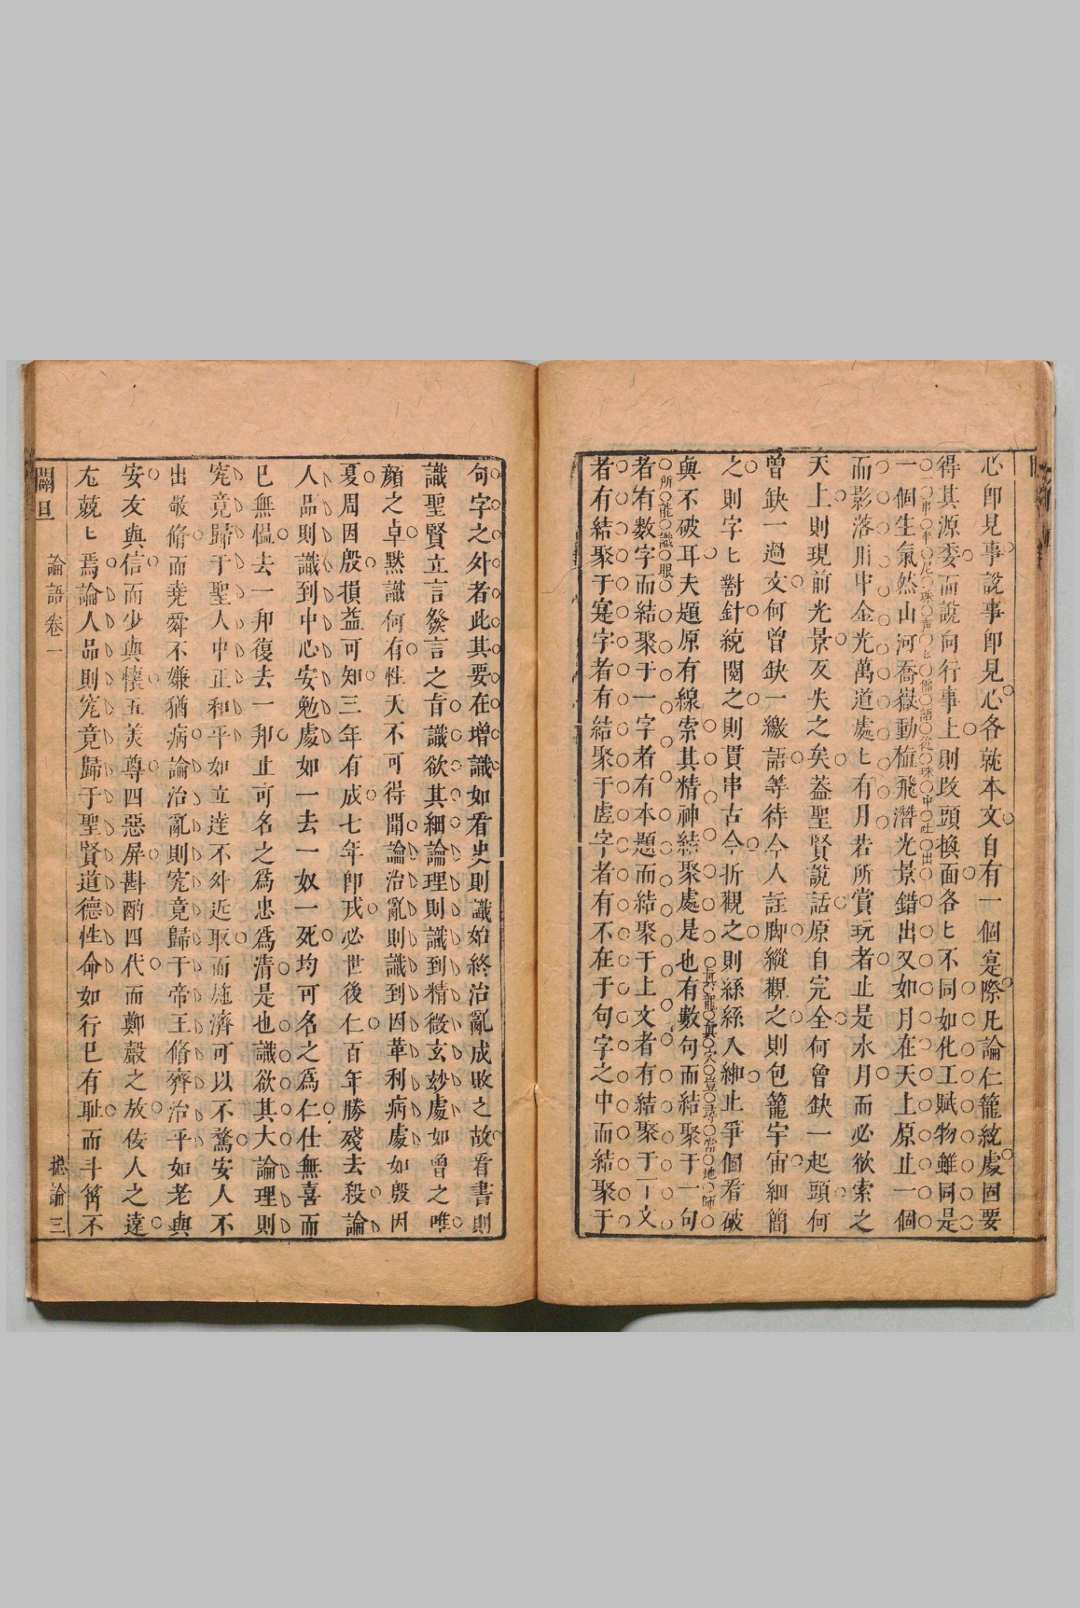 心即見事說事即見心各就本文自有一個寔際凡論仁籠統處固要
得其源委而說向行事上則改頭換面各〻不同如化工賦物雖同是
一個生氣然山河喬嶽動植飛潛光景錯出又如月在天上原止一個
而影落川中金光萬道處〻有月若所賞玩者止是水月而必欲索之
天上則現前光景反失之矣葢聖賢說話原自完全何曾缺一起頭何
曾缺一過文何曾缺一繳語等待今人註脚縱觀之則包籠宇宙細簡
之則字〻對針統閱之則貫串古今折觀之則絲絲入紳止爭個看破
與不破耳夫題原有線索其精神結聚處是也有數句而結聚于一句
者有數字而結聚于一字者有本題而結聚于上文者有結聚于下文
者有結聚于寔字者有結聚于虛字者有不在于句字之中而結聚于
句字之外者此其要在增識如看史則識始終治亂成敗之故看書則
識聖賢立言發言之旨識欲其細論理則識到精微玄玅處如曾之唯
顏之卓默識何有性天不可得聞論治亂則識到因革利病處如殷因
夏周因殷損益可知三年有成七年即戎必世後仁百年勝殘去殺論
人品則識到中心安勉處如一去一奴一死均可名之爲仁仕無喜而
已無慍去一邦復去一邦止可名之爲忠爲清是也識欲其大論理則
究竟歸于聖人中正和平如立達不外近取而施濟可以不騖安人不
出敬脩而堯舜不嫌猶病論治亂則究竟歸于帝王脩齊治平如老與
安友與信而少與懷五美尊四惡屏斟酌四代而鄭聲之放佞人之遠
尢兢〻焉論人品則究竟歸于聖賢道德性命如行已有耻而斗筲不
闡旦 論語卷一 摠論 三